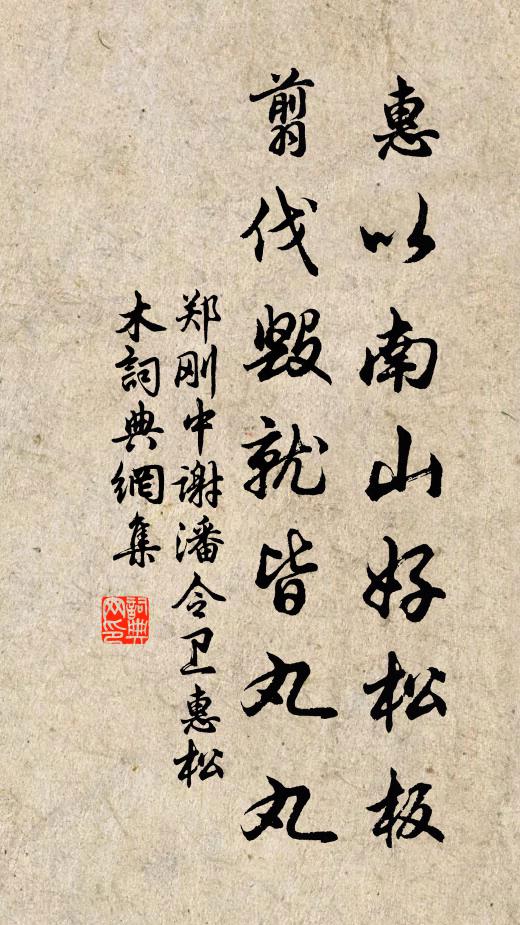 惠以南山好松板
翦伐毁就皆丸丸
郑刚中谢潘令卫惠松
木詞典網集
詞典
网印